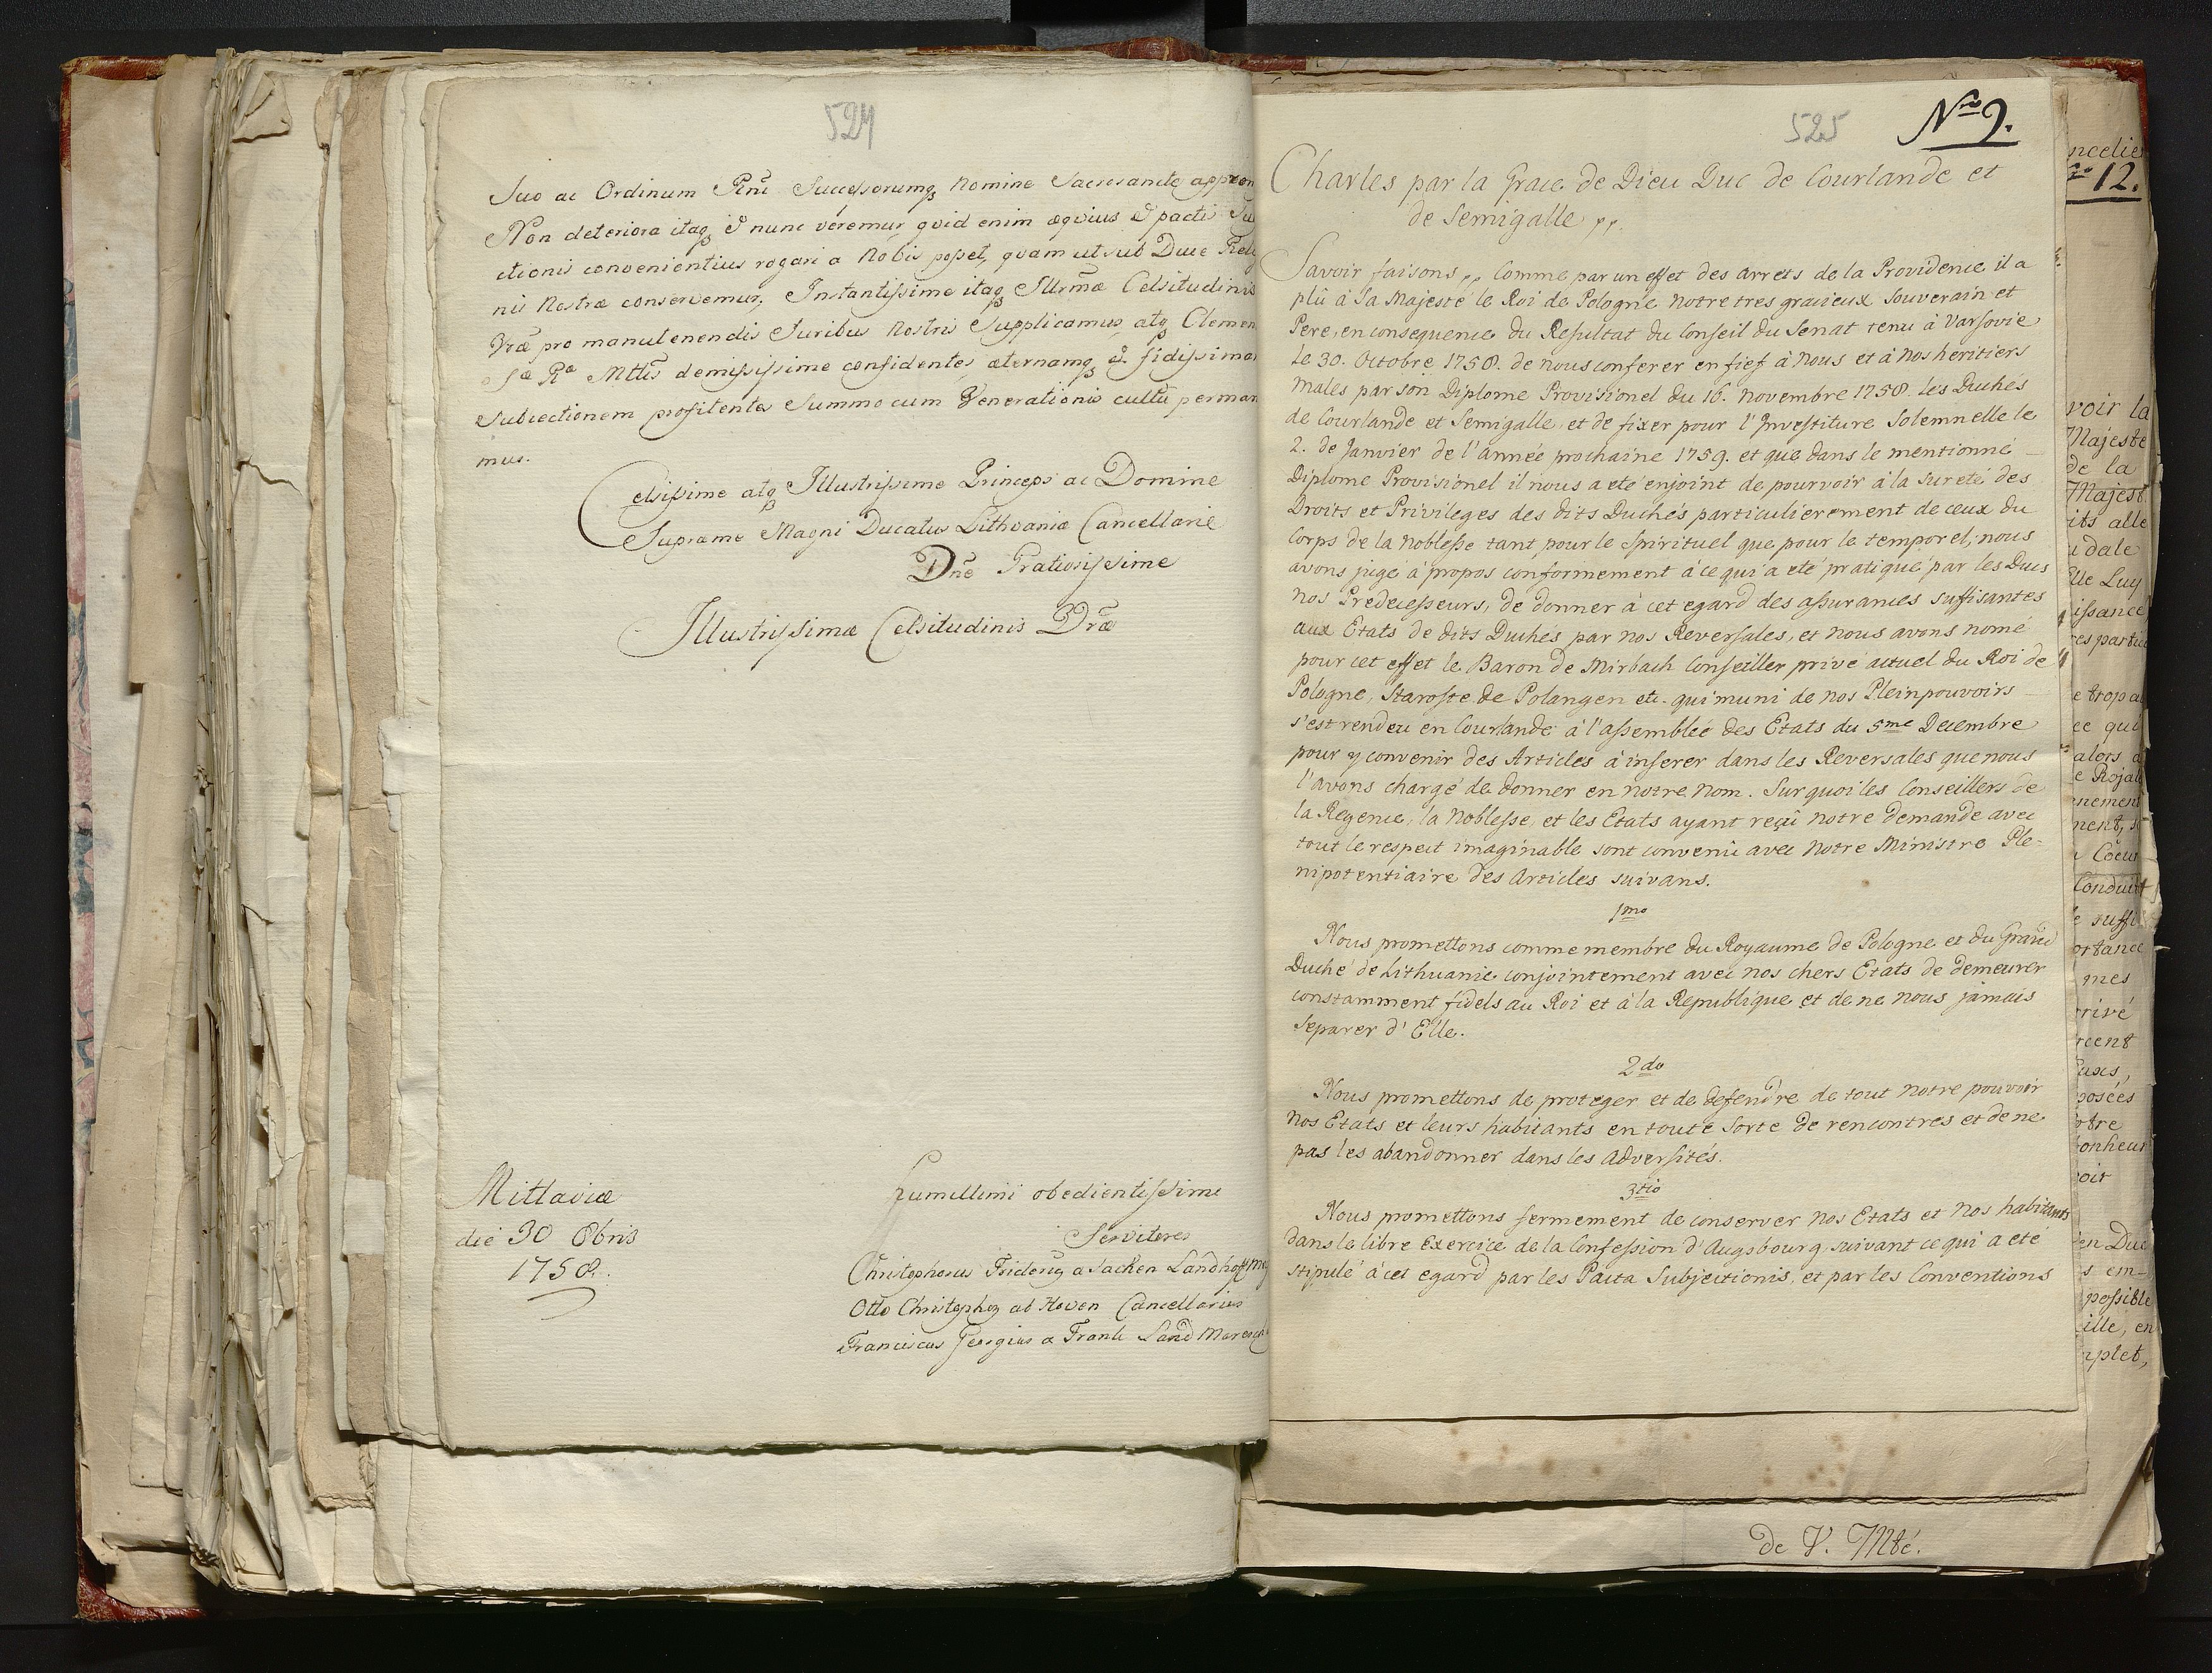 524
Suo ac Ordinum Rni Successorumq nomine Sacrosancte
Non deteriora itaq & nunc veremur, quid enim æquius & pacti
ctionis convenientius rogari a Nobis posset, quam ut sub Duce
nis Nostræ conservemur; Instantissime itaq Illrmæ Celsitudinis
Vræ pro manutenendis Juribus Nostris Supplicamus, atq
Sæ Ræ Mttis demississime confidentes, æternamq &
Subjectionem profitentes Summo cum Venerationis cultu perman
mus.
Celsissime atq Illustrissime Princeps ac Domine
Supreme Magni Ducatus Lithvaniæ Cancellarie
Dne Gratiosissime
Illustrissimæ Celsitudinis Vræ
Mittaviæ
die 30 Xbris
1758.
humillimi obedientissimi
Servitores
Christophorus Fridericus a Sacken
Otto Christopher ab Hoven Cancellarius
Franciscus Georgius a Frank
525 Nro 2.
Charles par la Grace de Dieu Duc de Courlande et
de Semigalle pp.
Savoir faisons pp Comme par un effet des arrets de la Providence il a
plû à Sa Majesté le Roi de Pologne notre tres gracieux Souverain et
Pere, en consequence du Resultat du Conseil du Senat tenu à Varsovie
le 30. Octobre 1758. de nous conferer en fief à Nous et à nos heritiers
males par son Diplome Provisionel du 16. Novembre 1758. les Duchés
de Courlande et Semigalle, et de fixer pour l'Investiture Solemnelle le
2. de Janvier de l'année prochaine 1759. et que dans le mentionné
Diplome Provisionel il nous a eté enjoint de pourvoir à la sureté des
Droits et Privileges des dits Duchés particulierement de ceux du
Corps de la Noblesse tant pour le Spirituel que pour le temporel; nous
avons jugé à propos conformement à ce qui a eté pratiqué par les Ducs
nos Predecesseurs, de donner à cet egard des assurances suffisantes
aux Etats de dits Duchés par nos Reversales, et nous avons nomé
pour cet effet le Baron de Mirbach Conseiller privé actuel du Roi de
Pologne, Staroste de Polangen etc. qui muni de nos Pleinpouvoirs
s'est rendeu en Courlande à l'assemblée des Etats du 5me Decembre
pour y convenir des Articles à inserer dans les Reversales que nous
l'avons chargé de donner en notre nom. Sur quoi les Conseillers de
la Regence, la Noblesse, et les Etats ayant reçû notre demande avec
tout le respect imaginable sont convenû avec Notre Ministre Ple-
nipotentiaire des Articles suivans.
1mo
Nous promettons comme membre du Royaume de Pologne et du Grand
Duché de Lithuanie conjointement avec nos chers Etats de demeurer
constamment fidels au Roi et à la Republique et de ne nous jamais
separer d'Elle.
2do
Nous promettons de proteger et de defendre de tout notre pouvoir
nos Etats et leurs habitants en toute sorte de rencontres et de ne
pas les abandonner dans les Adversités.
3tio
Nous promettons fermement de conserver nos Etats et nos habitants
dans le libre Exercice de la Confession d'Augsbourg suivant ce qui a eté
stipulé à cet egard par les Pacta Subjectionis, et par les Conventions
de V. Mté.
12.
voir la
Majesté
de la
Majest.